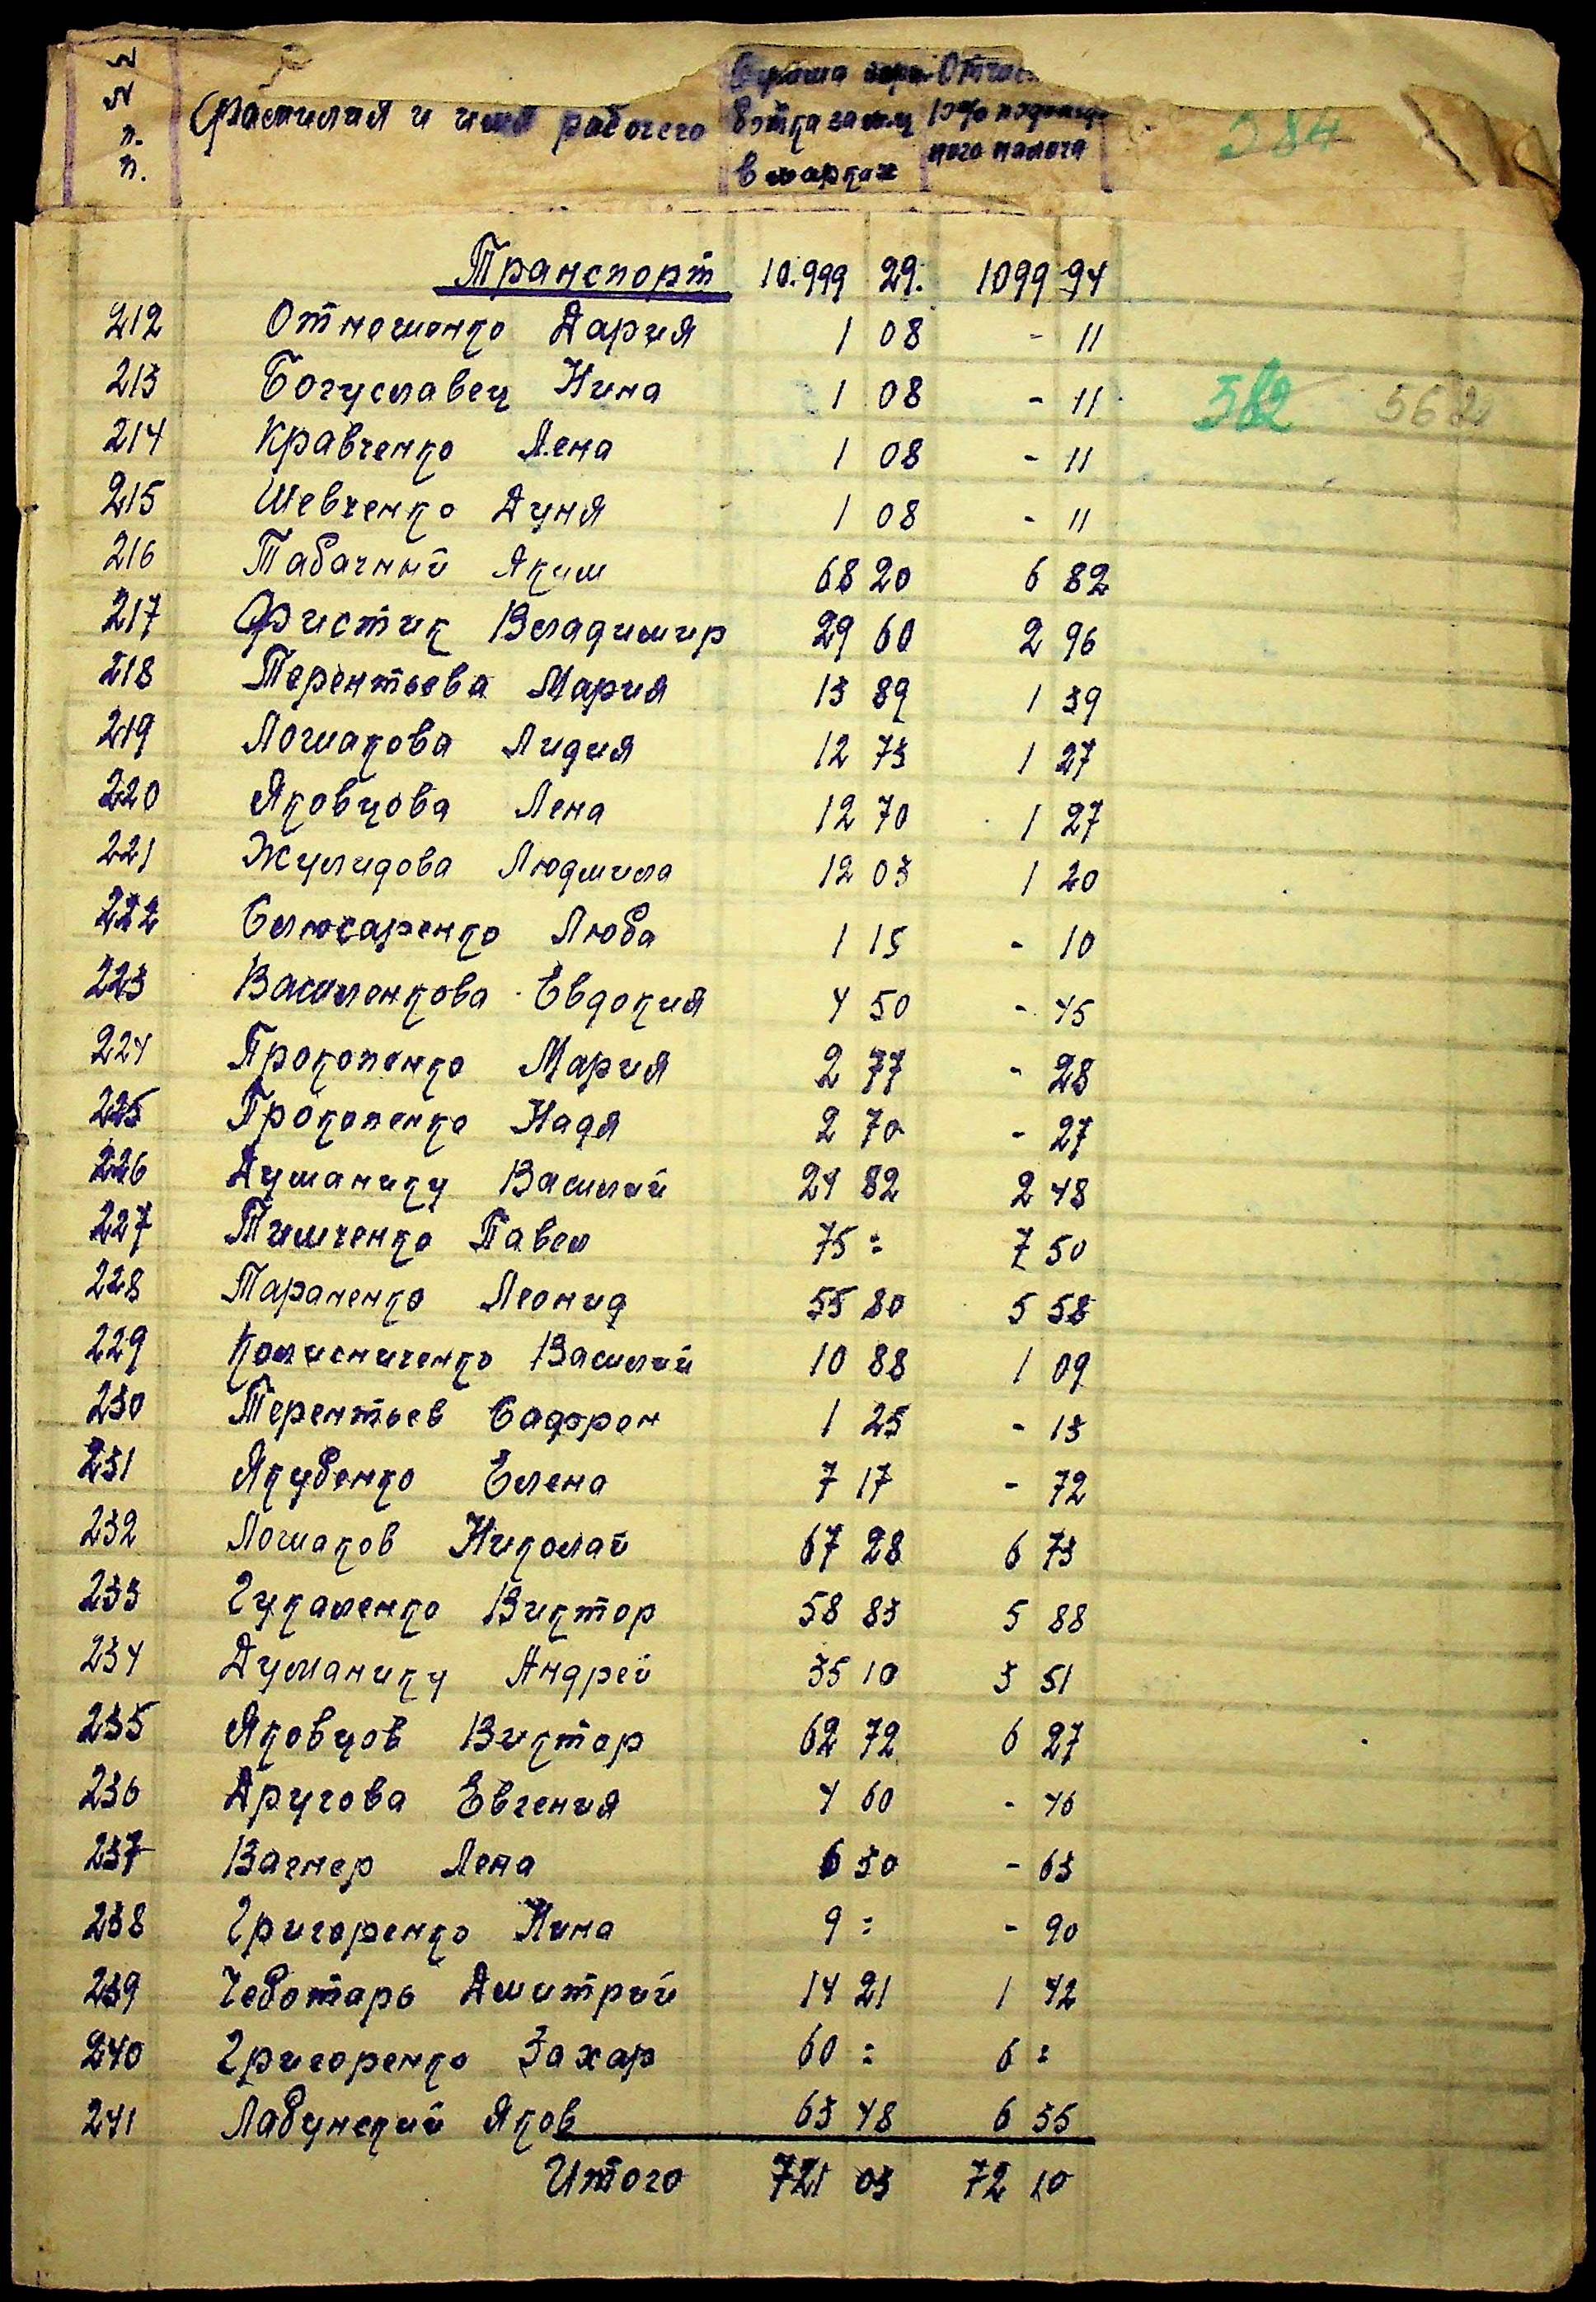 № № п. п. Фамилия и имя рабочего
Сумма зара-
ботка
в марках
10% подоход-
ного налога
384
Транспорт 10.999 29. 1099 94
212 Отношенко Дария 1 08 - 11
213 Богуславец Нина 1 08 - 11
582 562
214 Кравченко Лена 1 08 - 11
215 Шевченко Дуня 1 08 - 11
216 Табачный Яким 68 20 6 82
217 Фистик Владимир 29 60 2 96
218 Терентьева Мария 13 89 1 39
219 Лошакова Лидия 12 73 1 27
220 Яковцова Лена 12 70 1 27
221 Жулидова Людмила 12 03 1 20
222 Слюсаренко Люба 1 15 - 10
223 Василенкова Евдокия 4 50 - 45
224 Прокопенко Мария 2 77 - 28
225 Прокопенко Надя 2 70 - 27
226 Думанику Василий 24 82 2 48
227 Тимченко Павел 75 = 7 50
228 Тараненко Леонид 55 80 5 58
229 Колисниченко Василий 10 88 1 09
230 Терентьев Сафрон 1 25 - 13
231 Якубенко Елена 7 17 - 72
232 Лошаков Николай 67 28 6 73
233 Гукаленко Виктор 58 83 5 88
234 Думанику Андрей 35 10 3 51
235 Яковцов Виктор 62 72 6 27
236 Другова Евгения 4 60 - 46
237 Вагнер Лена 6 30 - 63
238 Григоренко Нина 9 = - 90
239 Чеботарь Дмитрий 14 21 1 42
240 Григоренко Захар 60 = 6 =
241 Лабунский Яков 63 48 6 35
Итого 721 03 72 10